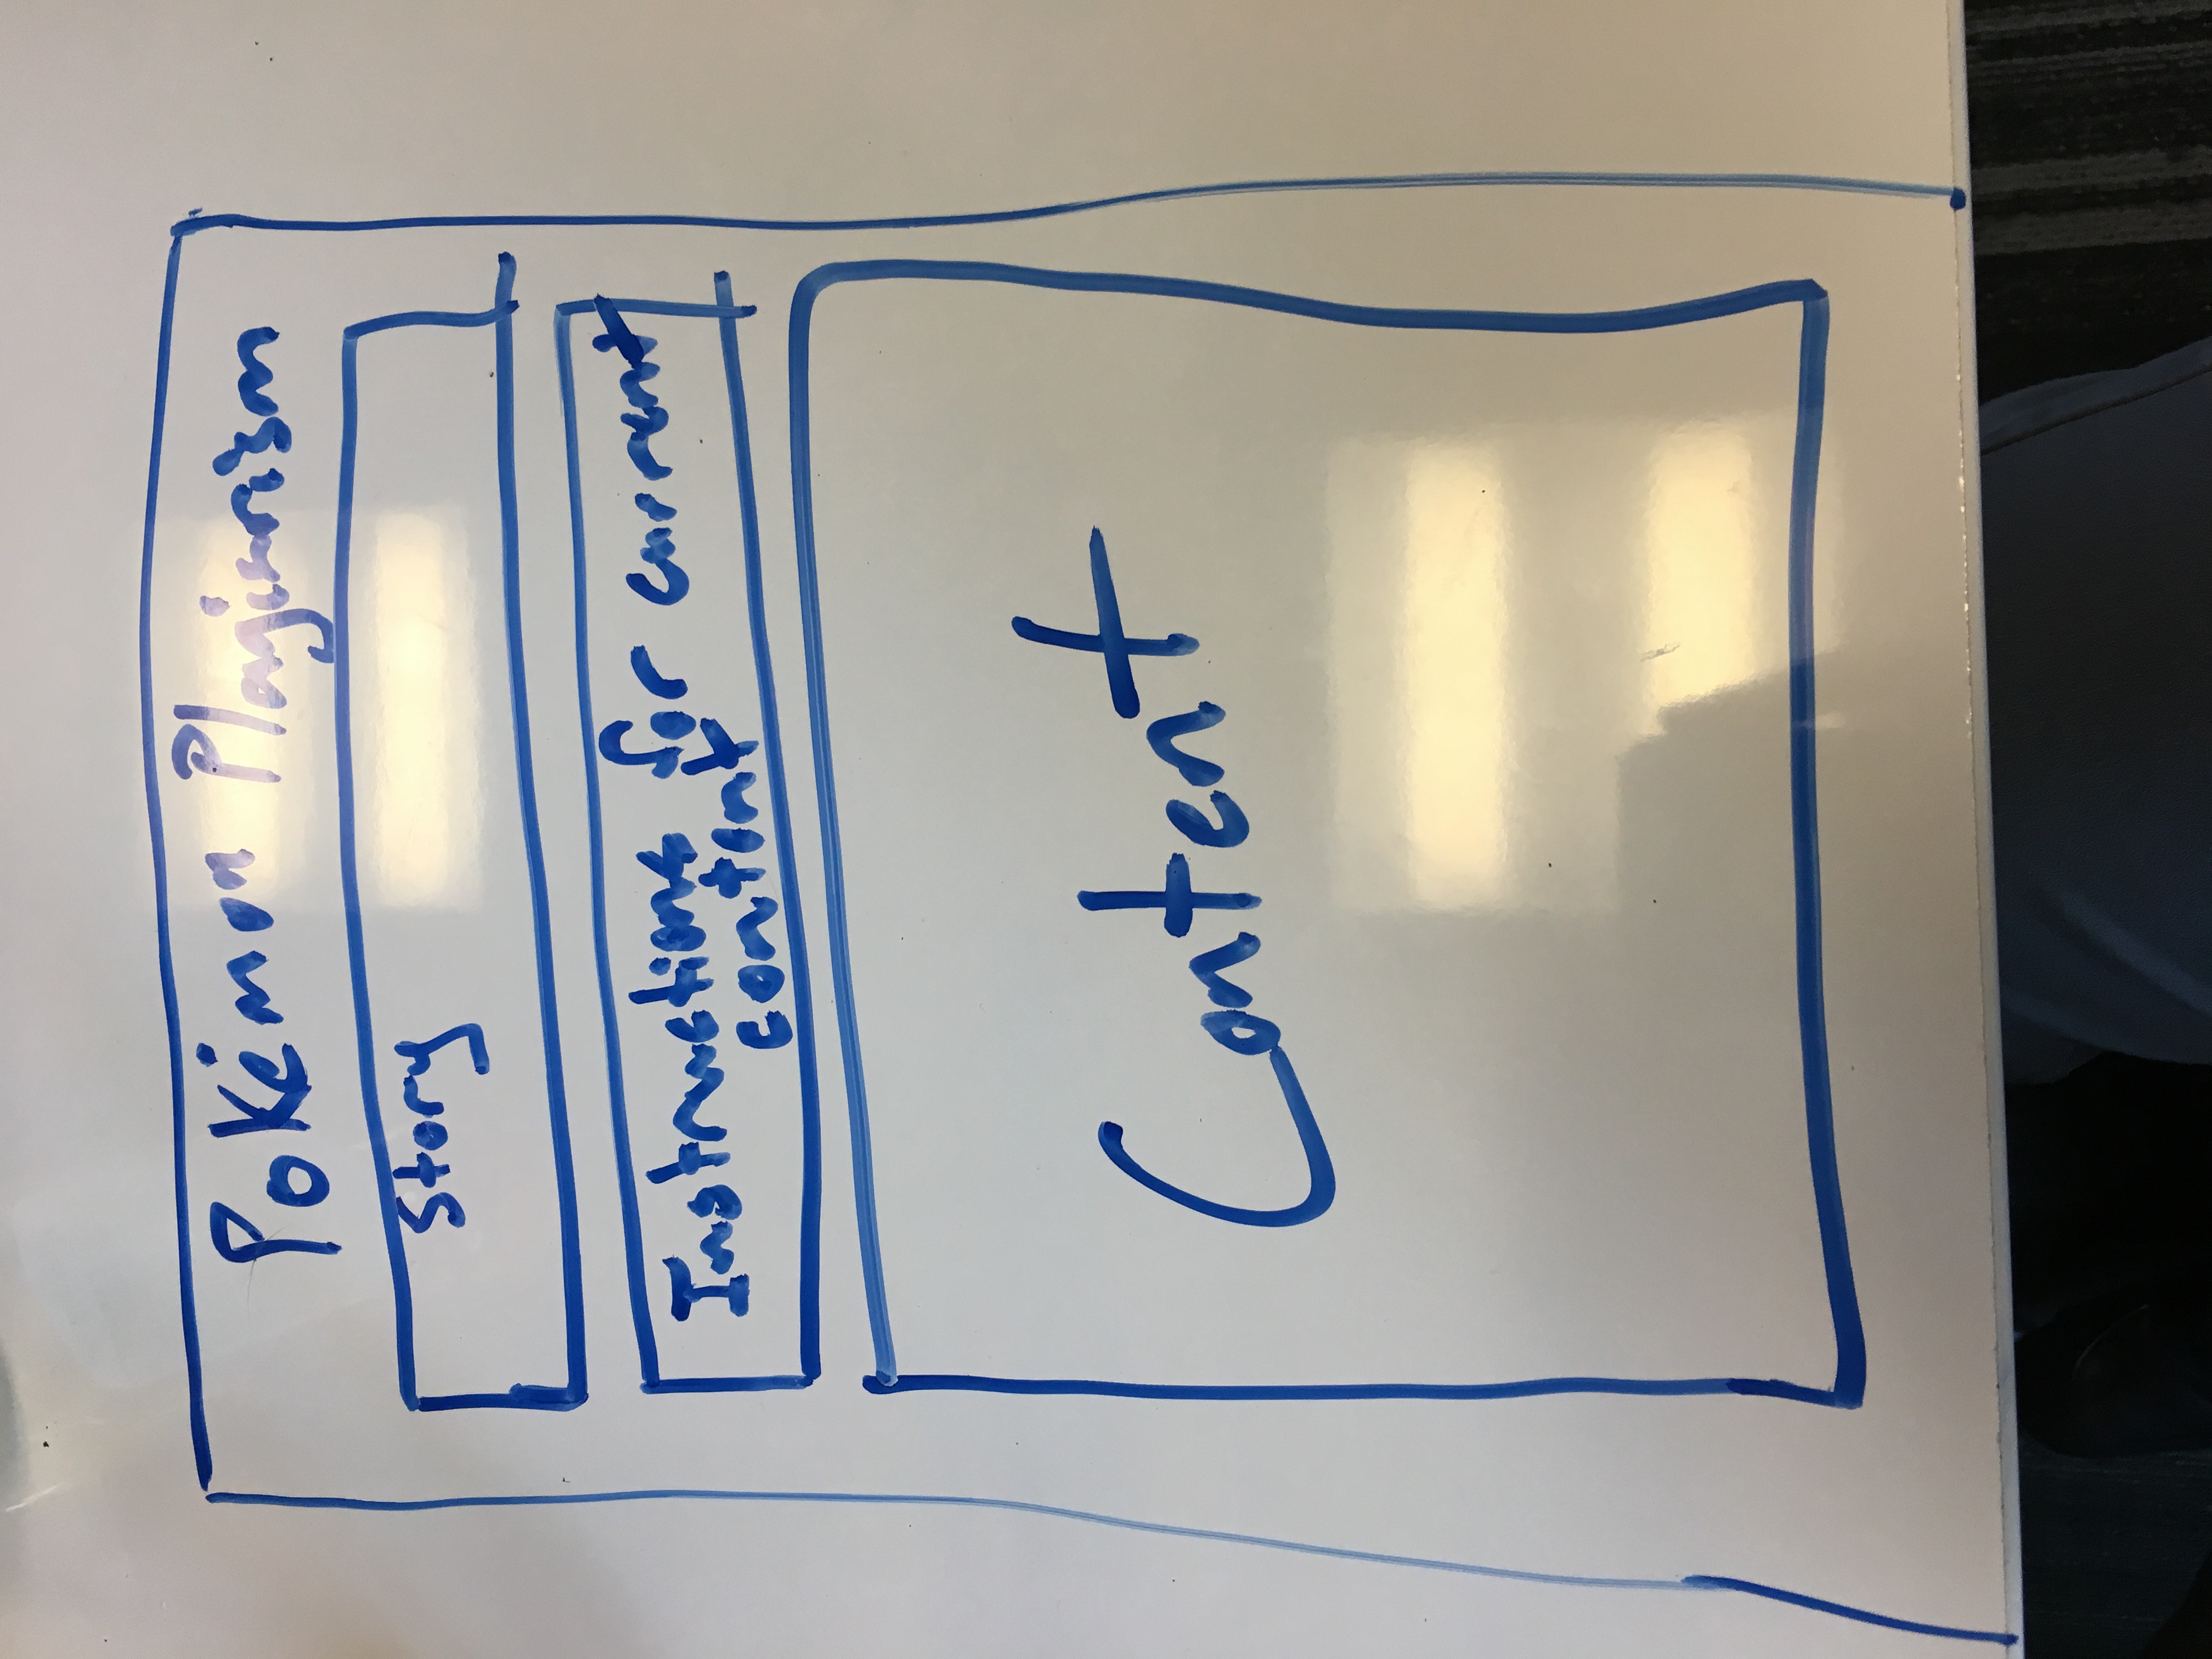 Pokémon Plagiarism
Story
Instructions for current
content
Content